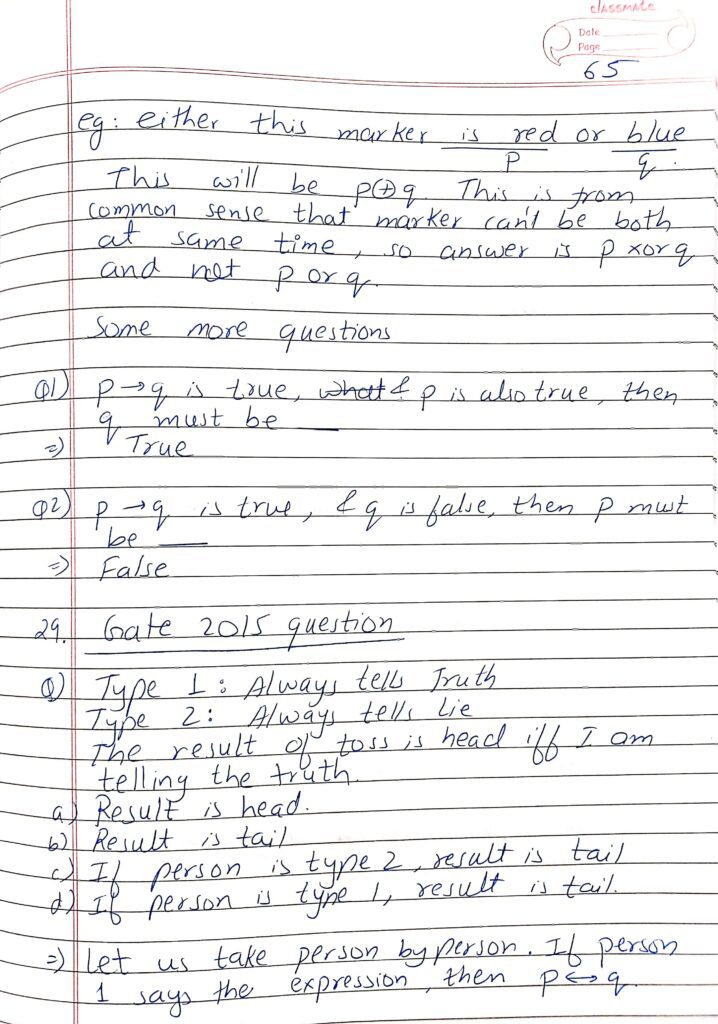 classmate
Date
Page
65
eg: either this marker is red or blue
p q.
This will be p⊕q. This is from
common sense that marker can't be both
at same time, so answer is p xor q
and not p or q.
Some more questions
Q1) p→q is true, what & p is also true, then
q must be __
=) True
Q2) p→q is true, & q is false, then p must
be __
=) False
29. Gate 2015 question
Q) Type 1: Always tells Truth
Type 2: Always tells Lie
The result of toss is head iff I am
telling the truth.
a) Result is head.
b) Result is tail
c) If person is type 2, result is tail
d) If person is type 1, result is tail.
=) Let us take person by person. If person
1 says the expression, then p↔q.